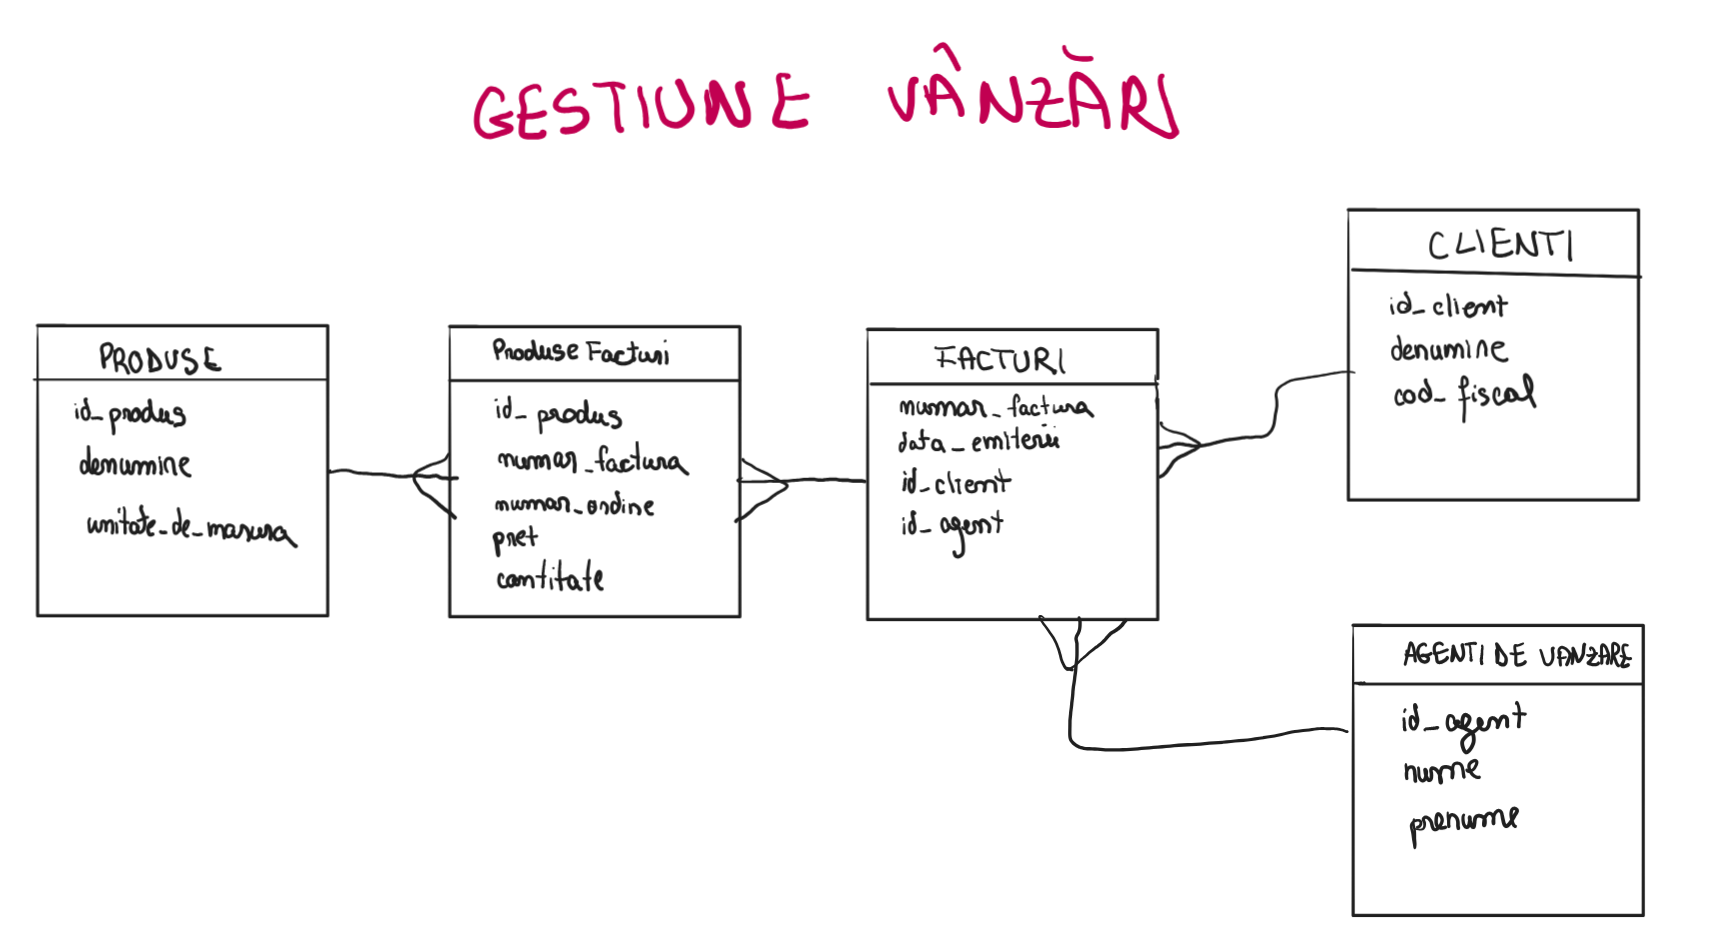 GESTIUNE VÂNZĂRI
PRODUSE
id_produs
denumire
unitate_de_masura
Produse Facturi
id_produs
numar_factura
numar_ordine
pret
cantitate
FACTURI
numar_factura
data_emiterii
id_client
id_agent
CLIENTI
id_client
denumire
cod_fiscal
AGENTI DE VANZARE
id_agent
nume
prenume